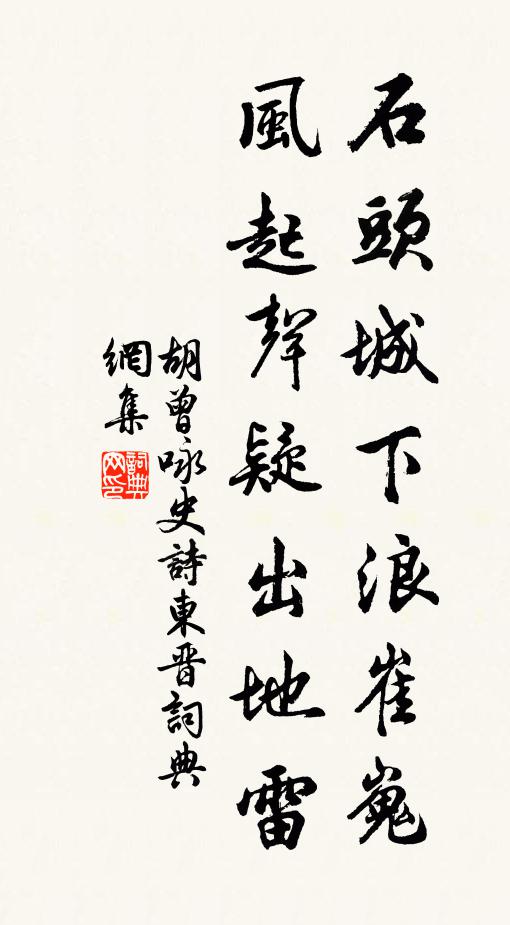 石頭城下浪崔嵬
風起聲疑出地雷
胡曾咏史詩東晋詞典
網集
詞典网印